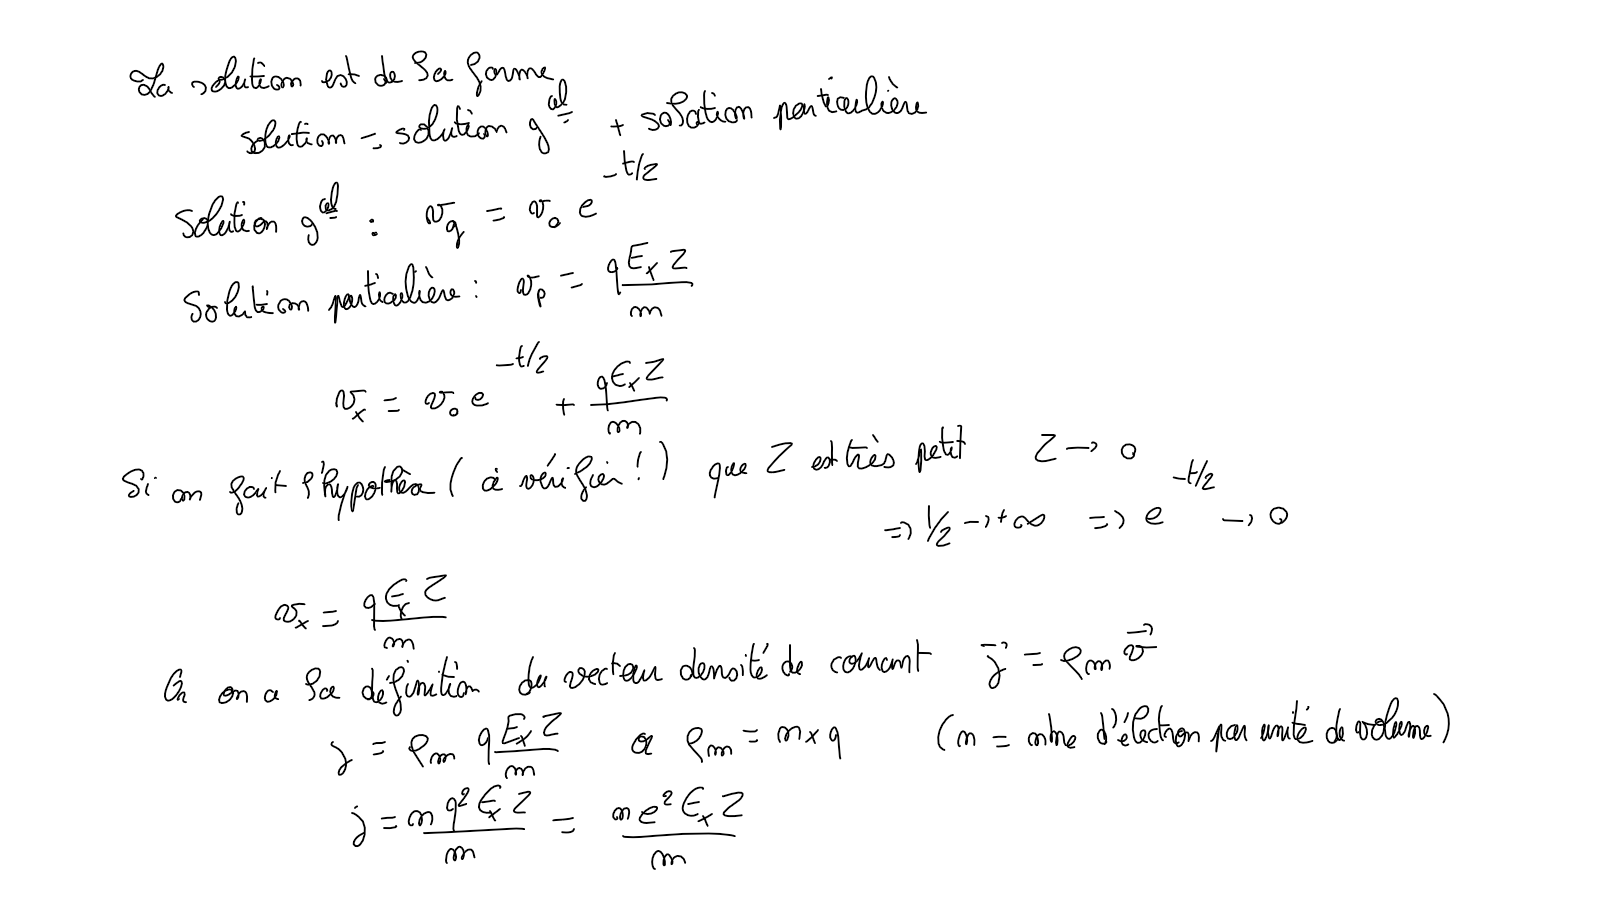 La solution est de la forme
solution = solution gal + solution particulière
Solution gal : v_g = v_0 e^(-t/τ)
Solution particulière : v_p = qE_xτ/m
v_x = v_0 e^(-t/τ) + qE_xτ/m
Si on fait l'hypothèse (à vérifier !) que τ est très petit τ → 0
=> 1/τ → +∞ => e^(-t/τ) → 0
v_x = qE_xτ/m
Or on a la définition du vecteur densité de courant j⃗ = ρ_m v⃗
j = ρ_m qE_xτ/m or ρ_m = n×q (n = nbre d'électron par unité de volume)
j = n q² E_x τ/m = n e² E_x τ/m